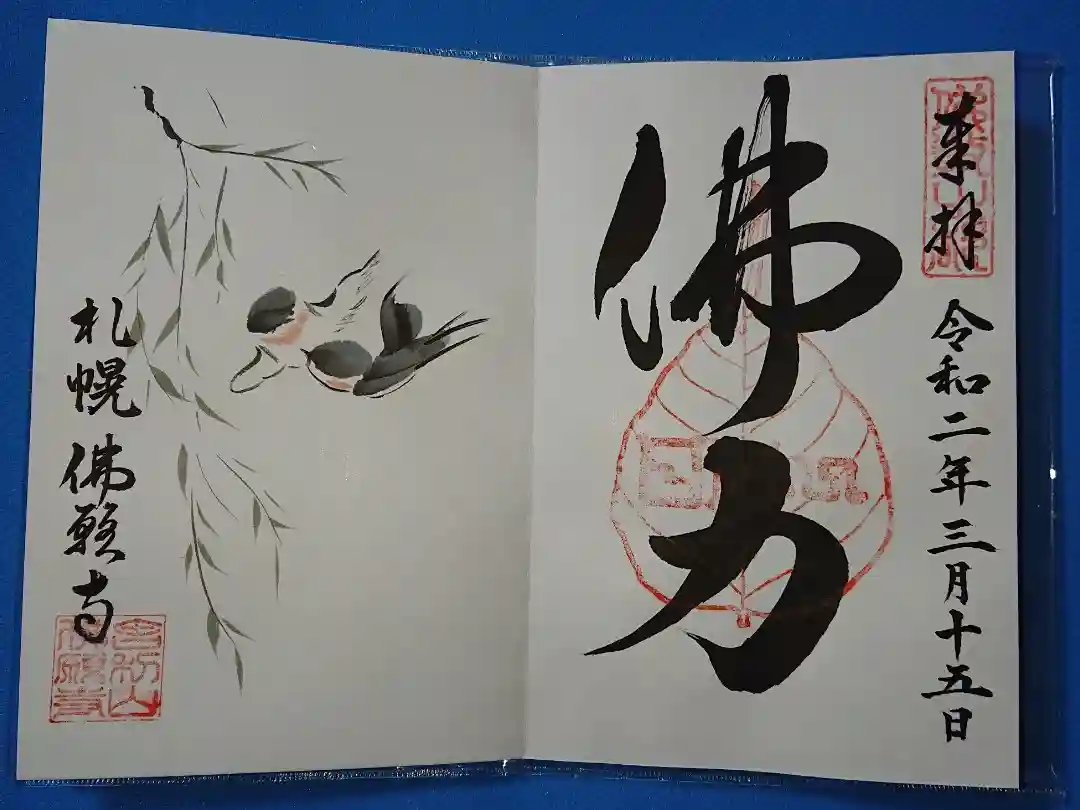 来拝
令和二年三月十五日
佛力
札幌 佛願寺